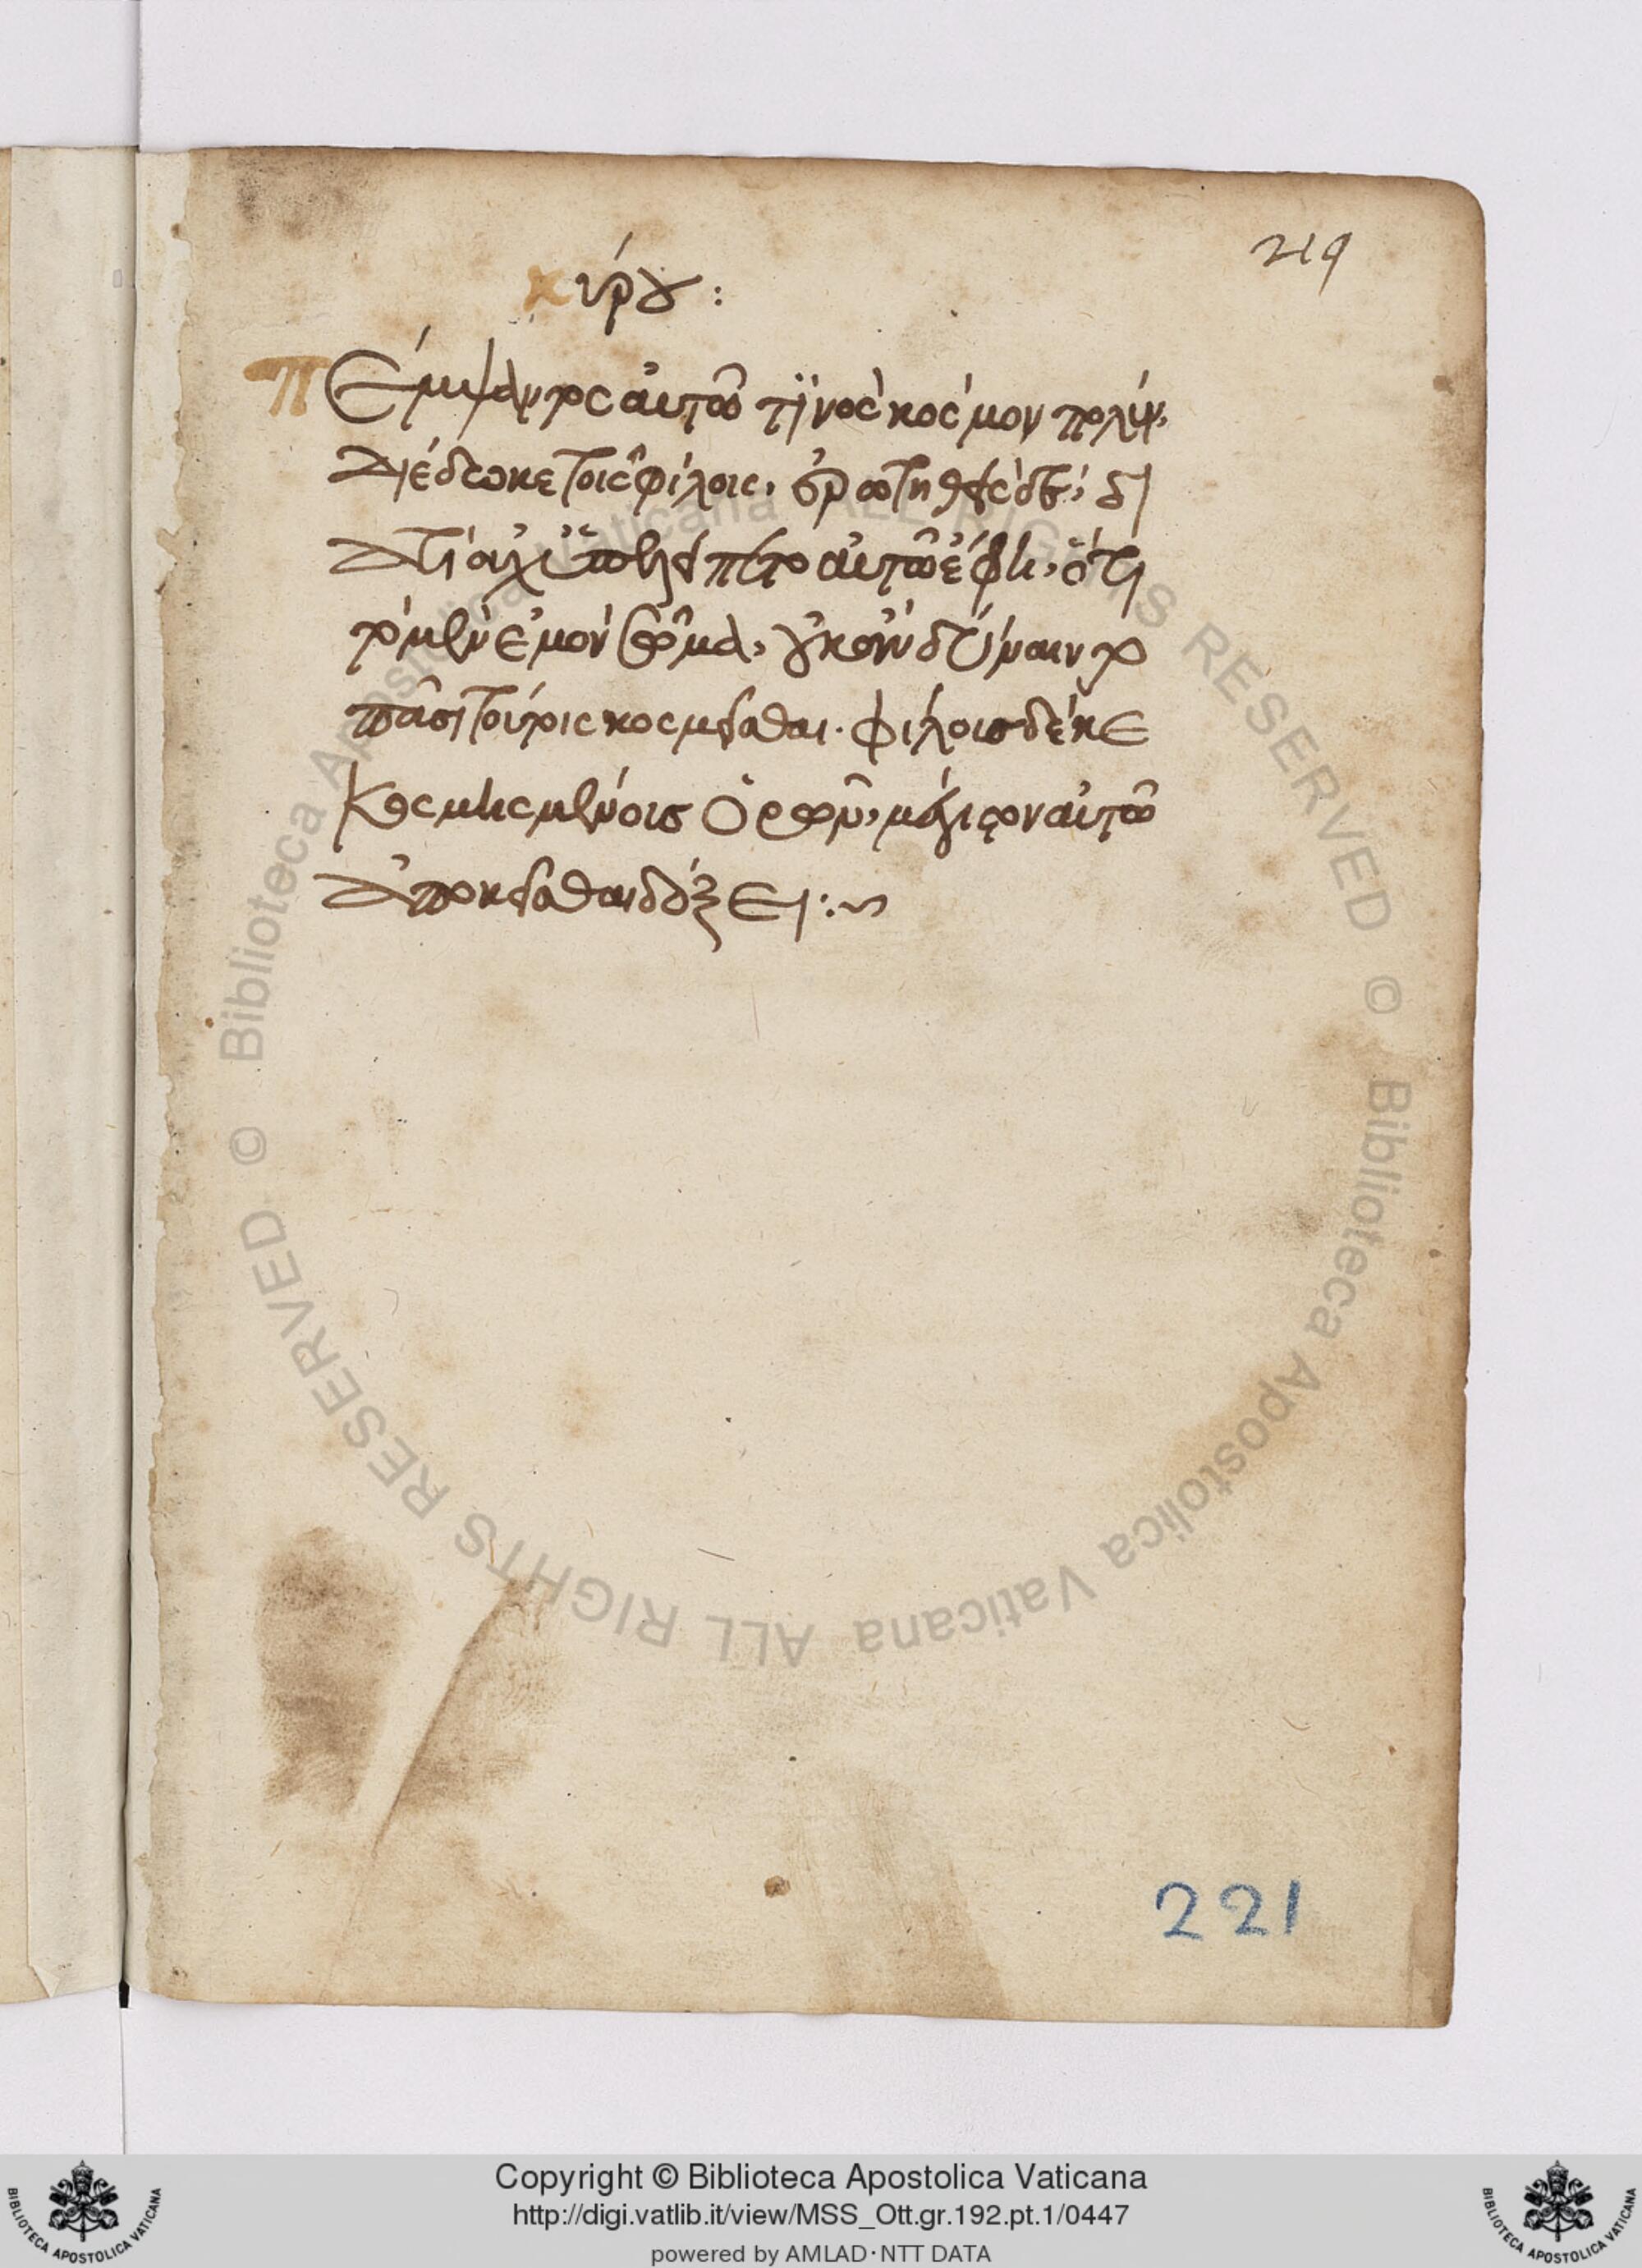 219
κύρου :
Πέμψαντος αὐτῶ τινὸς κόσμον πολὺν,
διέδωκε τοῖς φίλοις, ἐρωτηθεὶς δὲ, δι
ατί
αὐτῶ ἔφη, ὅτι
τὸ μὲν ἐμὸν σῶμα, οὐκ ἂν δύναιντο
πᾶσι τούτοις κοσμεῖσθαι. φίλοις δὲ κε
κοσμημένοις ὁρῶν, μέγιστον αὐτῶ
ἀποκεῖσθαι δόξει :~
221
© Biblioteca Apostolica Vaticana ALL RIGHTS RESERVED © Biblioteca Apostolica Vaticana ALL RIGHTS RESERVED
Copyright © Biblioteca Apostolica Vaticana
http://digi.vatlib.it/view/MSS_Ott.gr.192.pt.1/0447
powered by AMLAD·NTT DATA
BIBLIOTECA APOSTOLICA VATICANA
BIBLIOTECA APOSTOLICA VATICANA